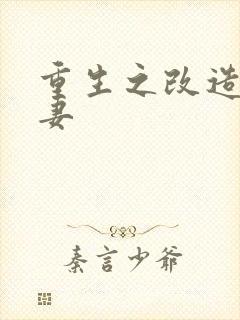 重生之改造
妻
秦言少爷